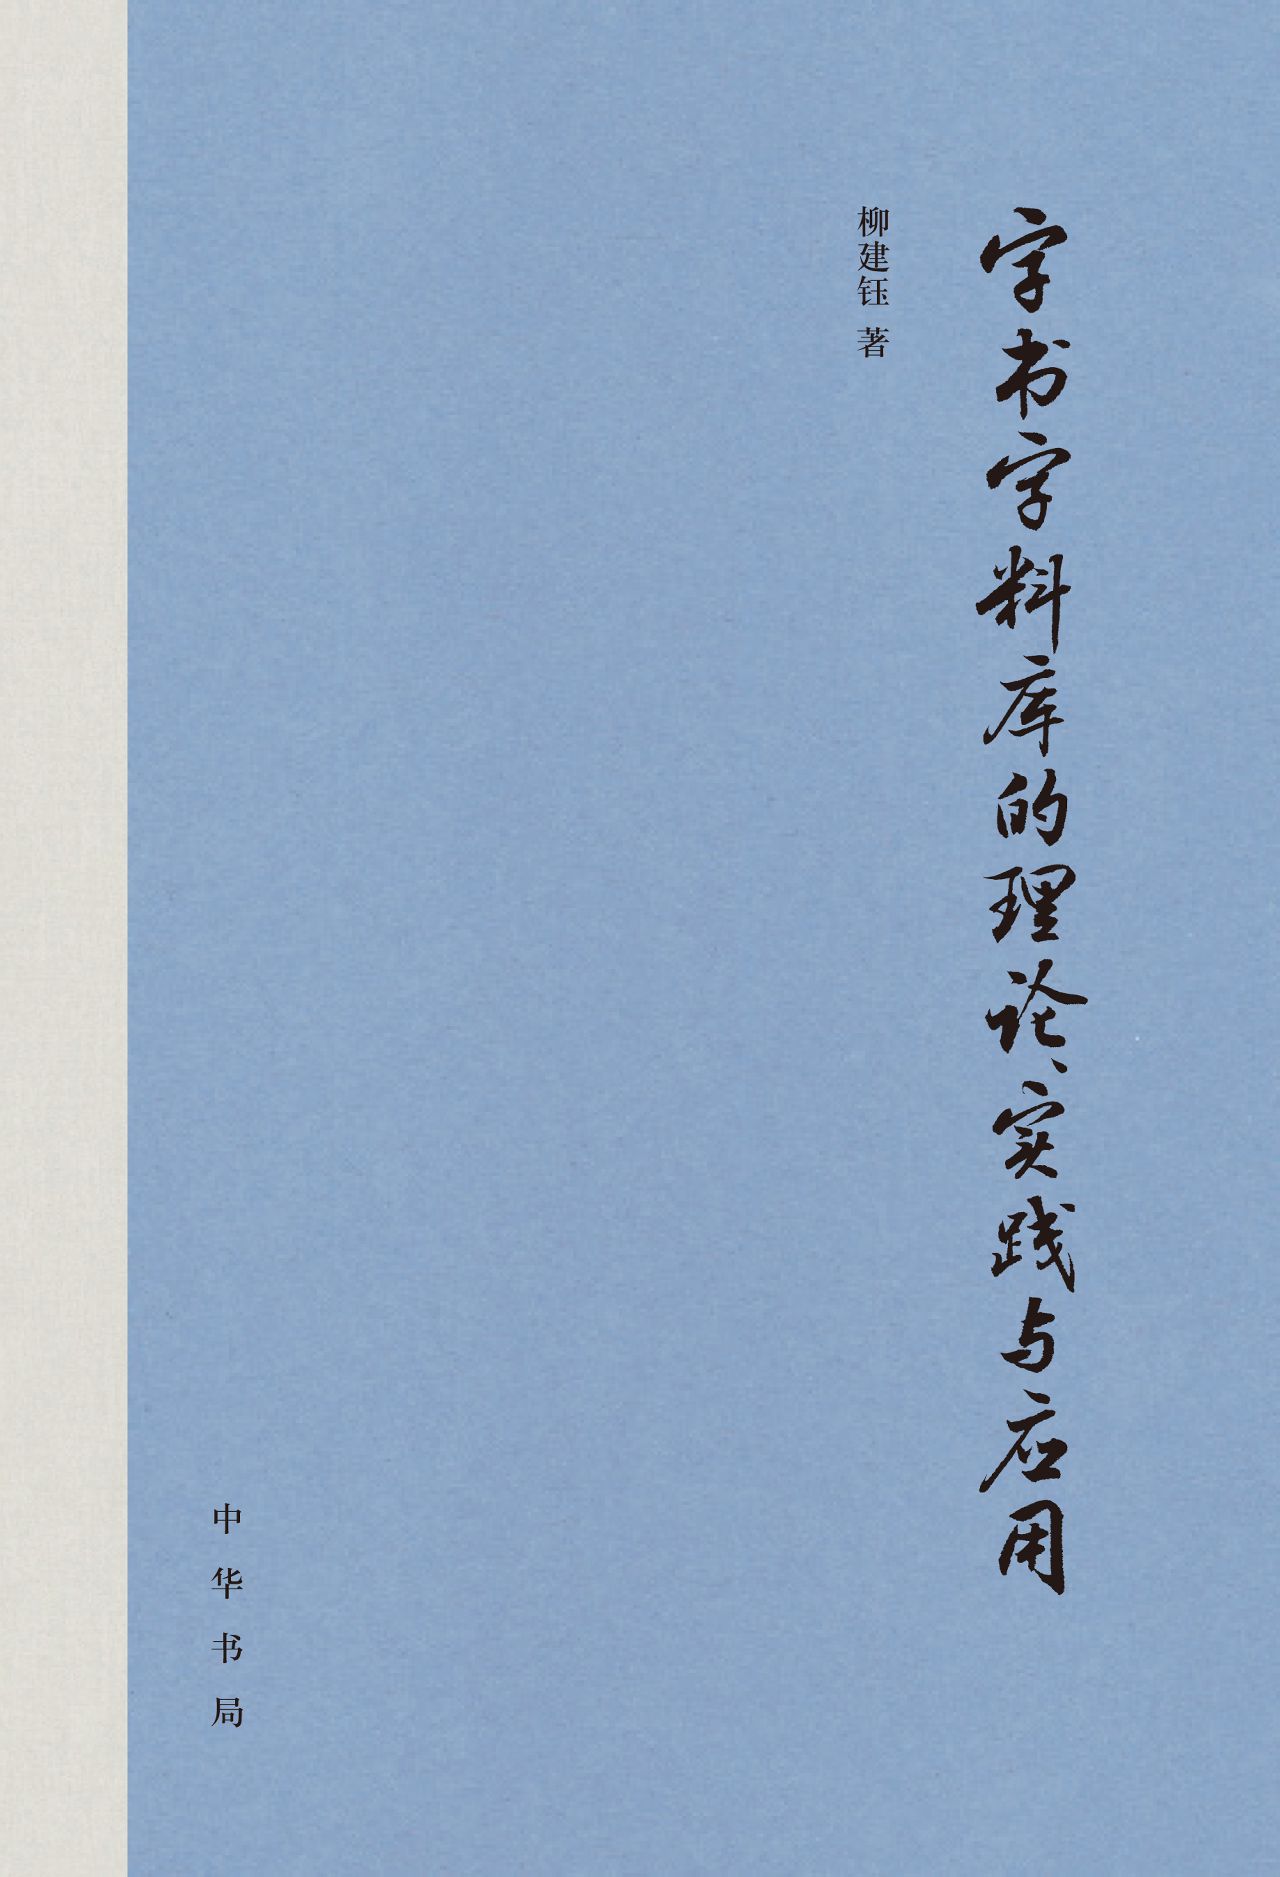 字书字料库的理论、实践与应用
柳建钰 著
中华书局